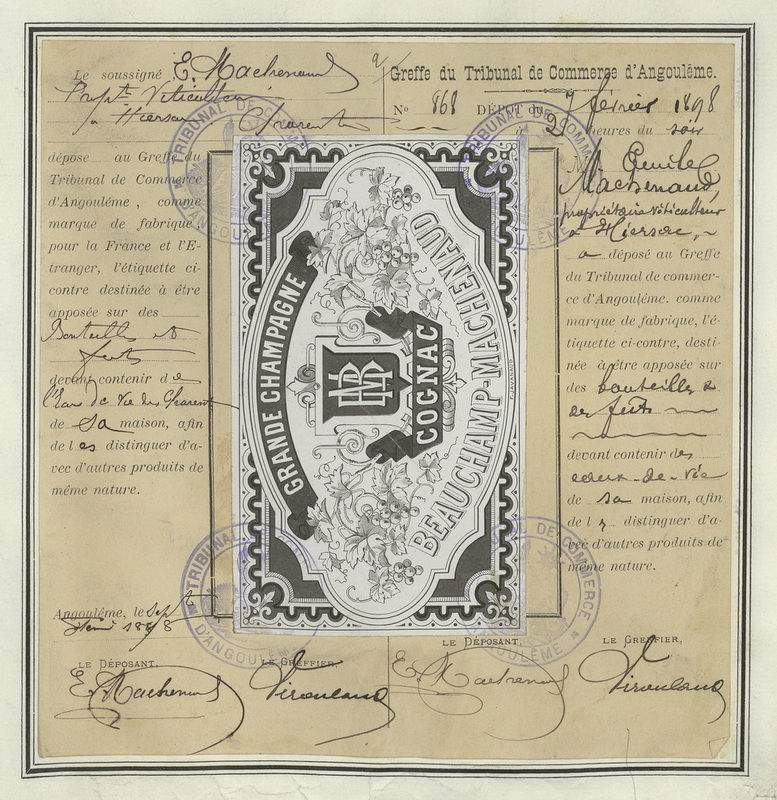 Le soussigné E. Machenaud
Propre Viticulteur
à Hiersac Charente
dépose au Greffe du
Tribunal de Commerce
d'Angoulême, comme
marque de fabrique,
pour la France et l'E-
tranger, l'étiquette ci-
contre destinée à être
apposée sur des
Bouteilles et
futs
devant contenir de
l'Eau de Vie des Charentes
de sa maison, afin
de les distinguer d'a-
vec d'autres produits de
même nature.
Angoulême, le sept
1898
LE DÉPOSANT,
LE GREFFIER,
E. Machenaud
GRANDE CHAMPAGNE
COGNAC
BEAUCHAMP-MACHENAUD
TRIBUNAL DE COMMERCE
D'ANGOULÊME
TRIBUNAL DE COMMERCE
D'ANGOULÊME
TRIBUNAL DE COMMERCE
D'ANGOULÊME
TRIBUNAL DE COMMERCE
D'ANGOULÊME
Greffe du Tribunal de Commerce d'Angoulême.
No 868 DÉPÔT du 7 février 1898
à 2 heures du soir
M. Emile
Machenaud,
propriétaire viticulteur
à Hiersac,
a déposé au Greffe
du Tribunal de commer-
ce d'Angoulême. comme
marque de fabrique, l'é-
tiquette ci-contre, desti-
née à être apposée sur
des bouteilles &
des futs
devant contenir des
eaux-de-vie
de sa maison, afin
de les distinguer d'a-
vec d'autres produits de
même nature.
LE DÉPOSANT,
LE GREFFIER,
E. Machenaud